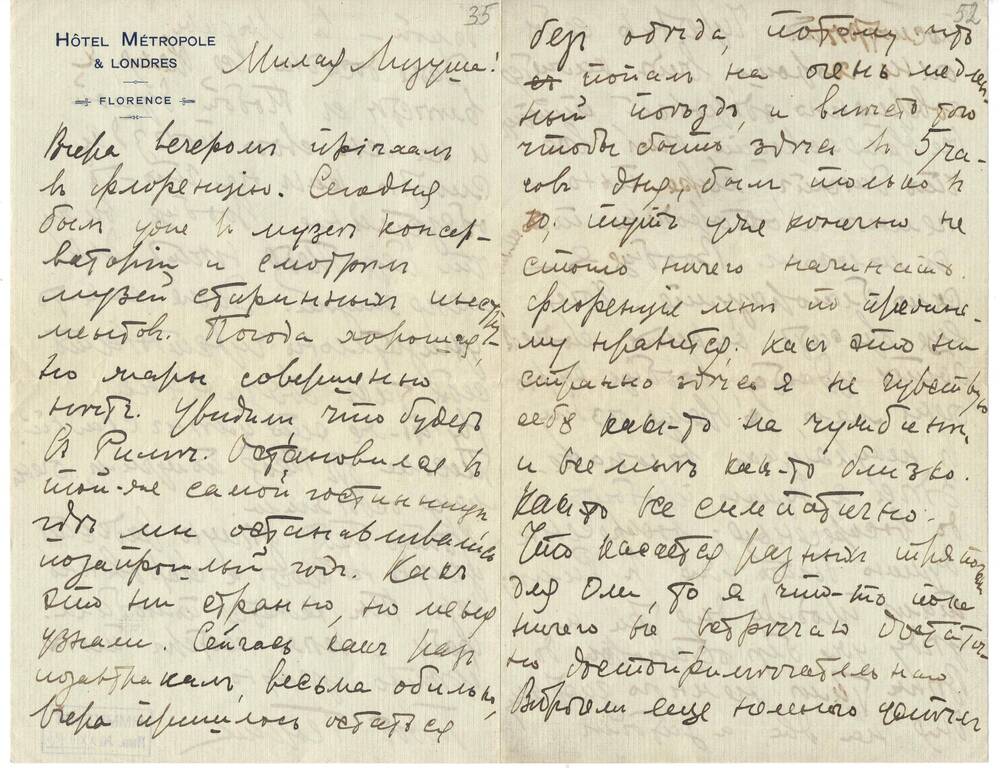 35
HÔTEL MÉTROPOLE
& LONDRES
FLORENCE
Милая Лизуша!
Вчера вечеромъ пріѣхалъ
въ Флоренцію. Сегодня
былъ уже въ музеѣ консер-
ваторіи и смотрѣлъ
музей старинныхъ инстру-
ментовъ. Погода хорошая,
но жары совершенно
нѣтъ. Увидимъ, что будетъ
въ Римѣ. Остановился въ
той-же самой гостинницѣ
гдѣ мы останавливались
позапрошлый годъ. Какъ
это ни странно, но меня
узнали. Сейчасъ какъ разъ
позавтракалъ, весьма обильно,
вчера пришлось остаться
52
безъ обѣда, потому что
попалъ на очень медлен-
ный поѣздъ, и вмѣсто того
чтобы быть здѣсь въ 5 ча-
совъ дня, былъ только въ
10, тутъ уже конечно не
стоило ничего начинать.
Флоренція мнѣ по прежне-
му нравится. Какъ это ни
странно здѣсь я не чувствую
себя какъ-то на чужбинѣ,
и все мнѣ какъ-то близко.
Какъ-то все симпатично.
Что касается разныхъ тряпокъ
для Оли, то я что-то пока
ничего не встрѣчаю достаточ-
но достопримѣчательнаго.
еще немного